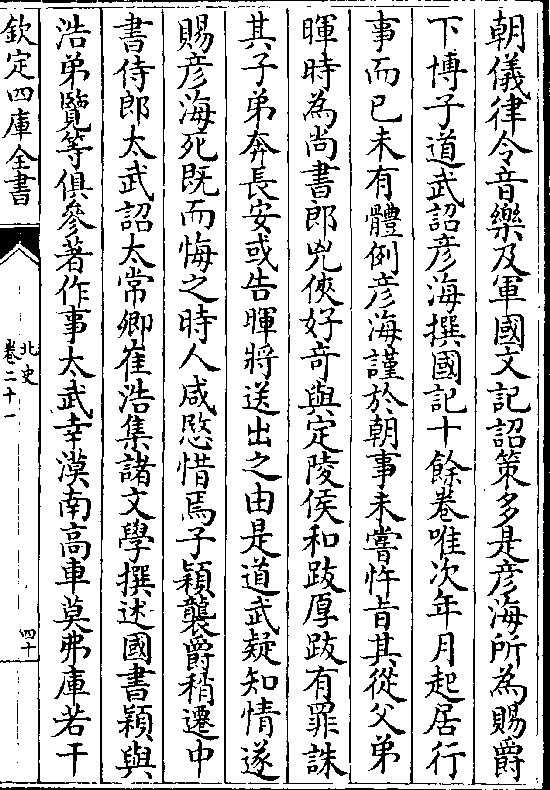 朝儀律令音樂及軍國文記詔策多是彦海所為賜爵
下博子道武詔彦海撰國記十餘卷唯次年月起居行
事而已未有體例彦海謹於朝事未嘗忤旨其從父弟
暉時為尚書郎兇俠好奇與定陵侯和跋厚跋有罪誅
其子弟奔長安或告暉將送出之由是道武疑知情遂
賜彦海死既而悔之時人咸愍惜焉子穎襲爵稍遷中
書侍郎太武詔太常卿崔浩集諸文學撰述國書穎與
浩弟覽等俱參著作事太武幸漠南高車莫弗庫若干
欽定四庫全書
北史
卷二十一
四十